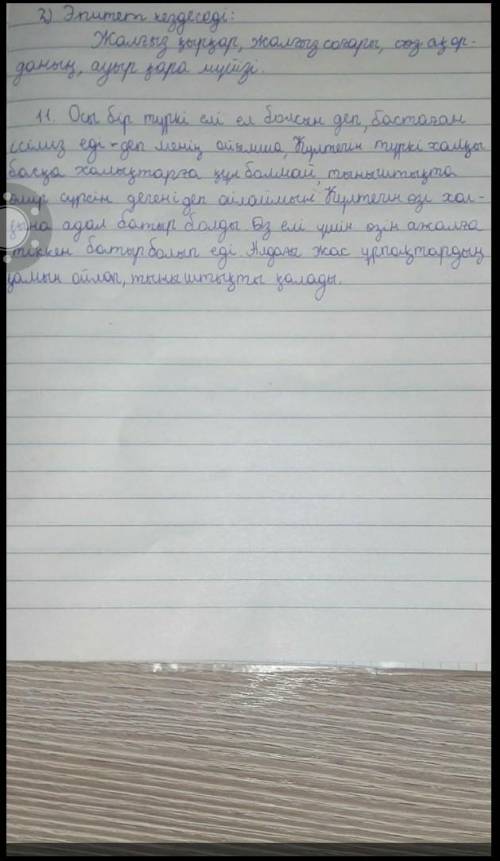 2) Эпитет кездеседі:
Жалғыз қырқар, жалғыз сағары, сөз ақор-
даның, ауыр қара мүйізі.
11. Осы бір түркі елі ел болсын деп, бастаған
ісіміз еді - деп менің ойымша, Күлтегін түркі халқы
басқа халықтарға құл болмай тыныштықта
өмір сүрсін дегені деп ойлаймын. Күлтегін өзі хал-
қына адал батыр болды. Өз елі үшін өзін ажалға
тіккен батыр болып еді. Алдағы жас ұрпақтардың
қамын ойлап, тыныштықты қалады.